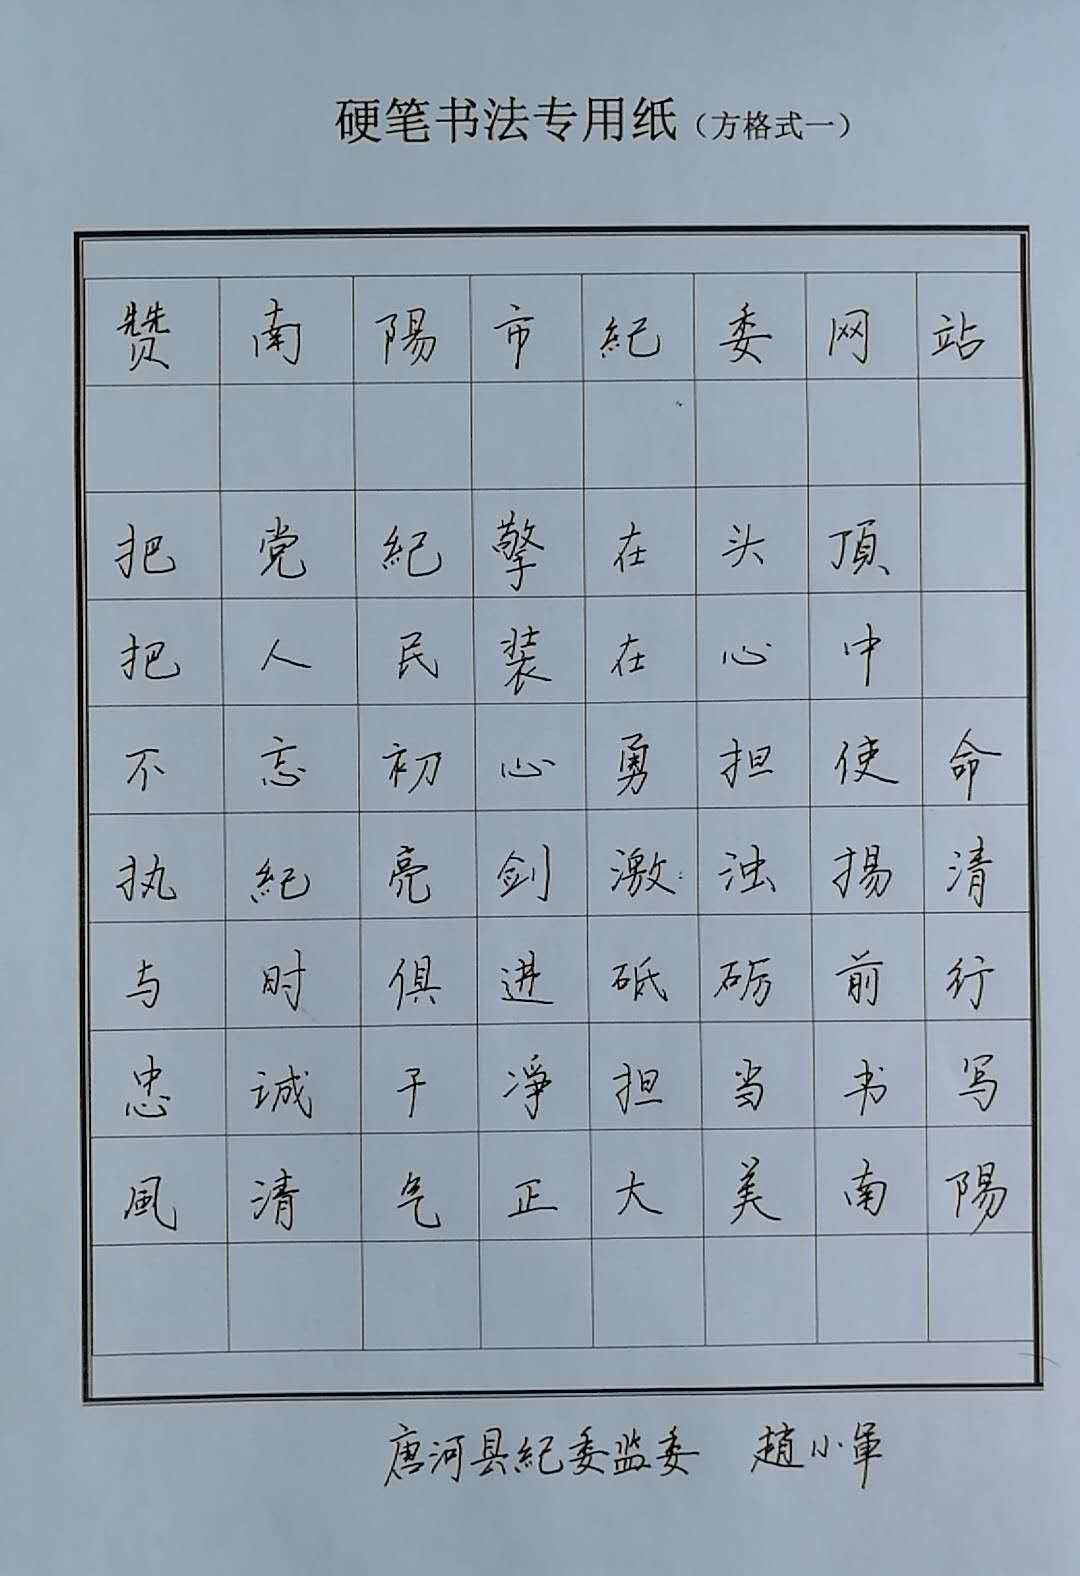 硬笔书法专用纸（方格式一）
赞南陽市紀委网站
把党紀擎在头頂
把人民装在心中
不忘初心勇担使命
执紀亮剑激浊揚清
与时俱进砥砺前行
忠诚干净担当书写
風清气正大美南陽
唐河县紀委监委 趙小軍